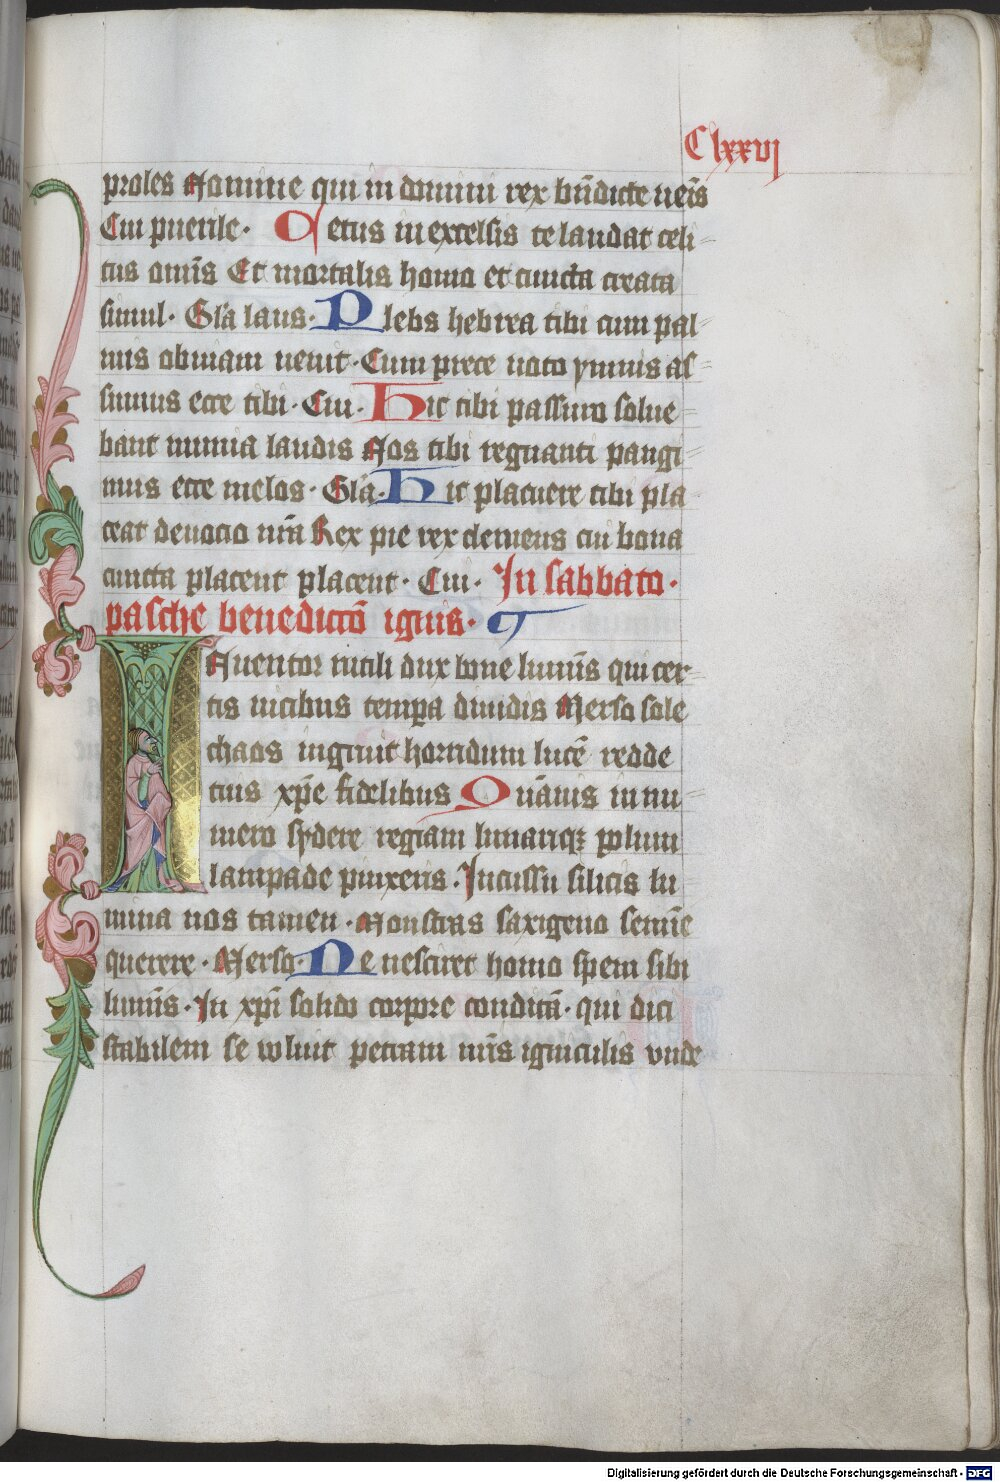 Clxxvj
proles Nomine qui in domini rex bn̄dicte ueīs
Cui puerile· Cetus in excelsis te laudat celi⸗
cus om̄s Et mortalis homo et cuncta creata
simul· Gl̄a laus· Plebs hebrea tibi cum pal⸗
mis obuiam uenit· Cum prece uoto ymnis as⸗
sumus ecce tibi· Cui· Hic tibi passuro solue⸗
bant munia laudis Nos tibi regnanti pangi⸗
mus ecce melos· Gl̄a· Hic placuere tibi pla
ceat deuocio nr̄a Rex pie rex clemens cui bona
cuncta placent placent· Cui· In sabbato·
pasche benedictō ignis·
INuentor rutili dux bone lumīs qui cer⸗
tis uicibus tempa diuidis Merso sole
chaos ingruit horridum lucē redde
tuis xp̄e fidelibus Quāuis innu
mero sydere regiam lunariq; polum
lampade pinxeris· Incussu silicis lu
mina nos tamen· Monstras saxigeno semīe
querere· Merso· Ne nesciret homo spem sibi
lumīs· In xp̄i solido corpore conditā· qui dici
stabilem se voluit petram nr̄is igniculis vnde
Digitalisierung gefördert durch die Deutsche Forschungsgemeinschaft - DFG